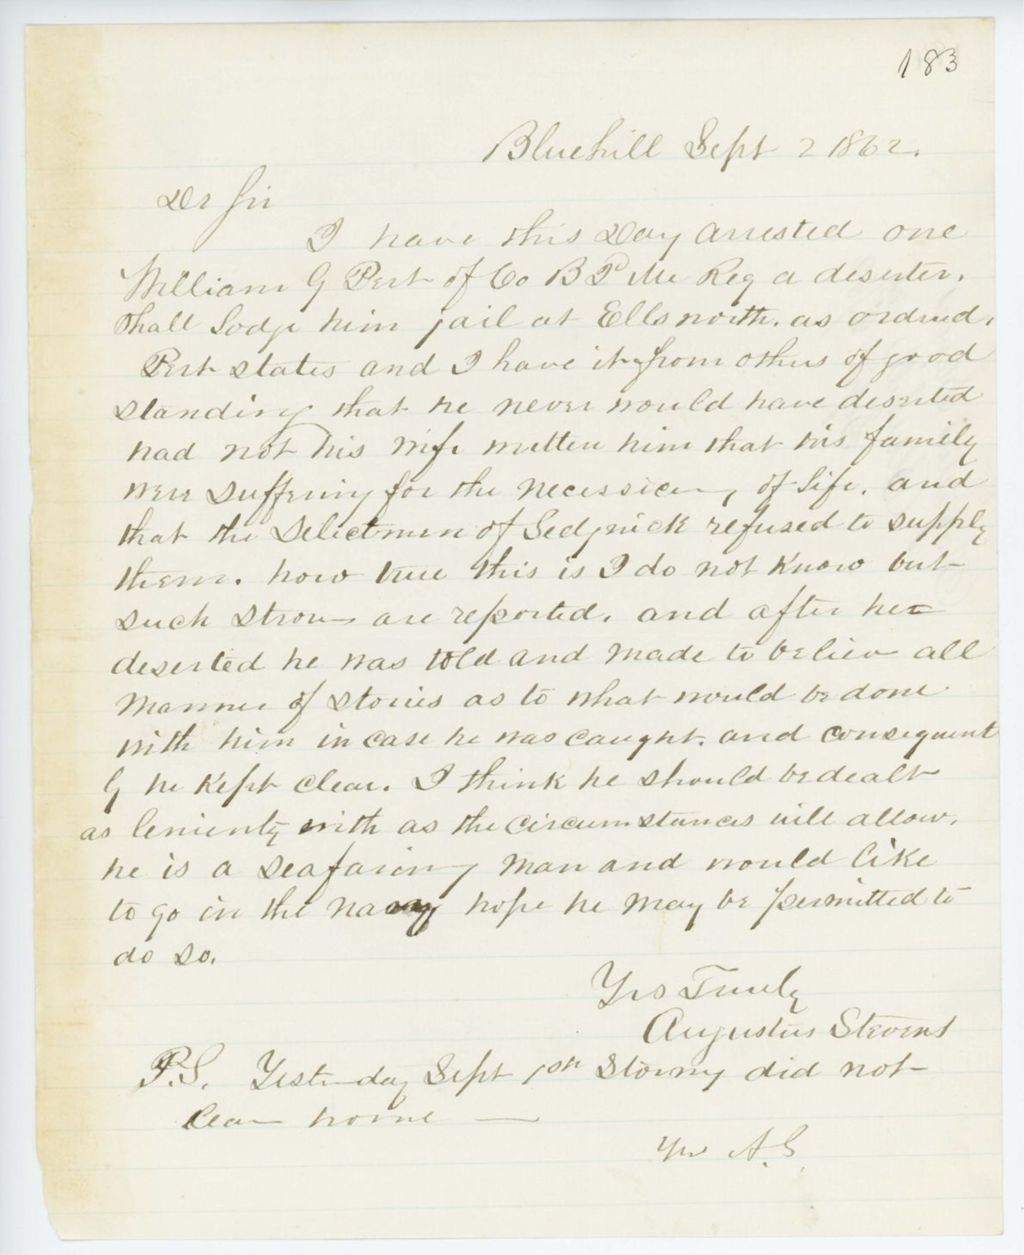 183
Bluehill Sept 2 1862.
Dr Sir
I have this Day arrested one
William G Pert of Co B 1st Me Reg a deserter.
shall Lodge him jail at Ellsworth. as ordered.
Pert states and I have it from others of good
standing that he never would have deserted
had not his wife written him that his family
were suffering for the necessicery of life. and
that the Selectmen of Sedgwick refused to supply
them. how true this is I do not know but
such strories are reported. and after he
deserted he was told and made to believe all
manner of stories as to what would be done
with him in case he was caught. and consequent
ly he kept clear. I think he should be dealt
as leniently with as the circumstances will allow.
he is a seafaring man and would like
to go in the navy hope he may be permitted to
do so.
Yrs Truely
Augustus Stevens
P.S. Yesterday Sept 1st Stormy did not
leave home —
Yrs A.S.